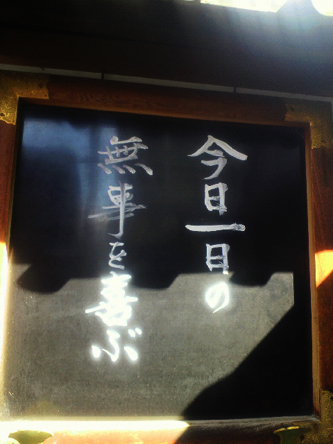 今日一日の
無事を喜ぶ